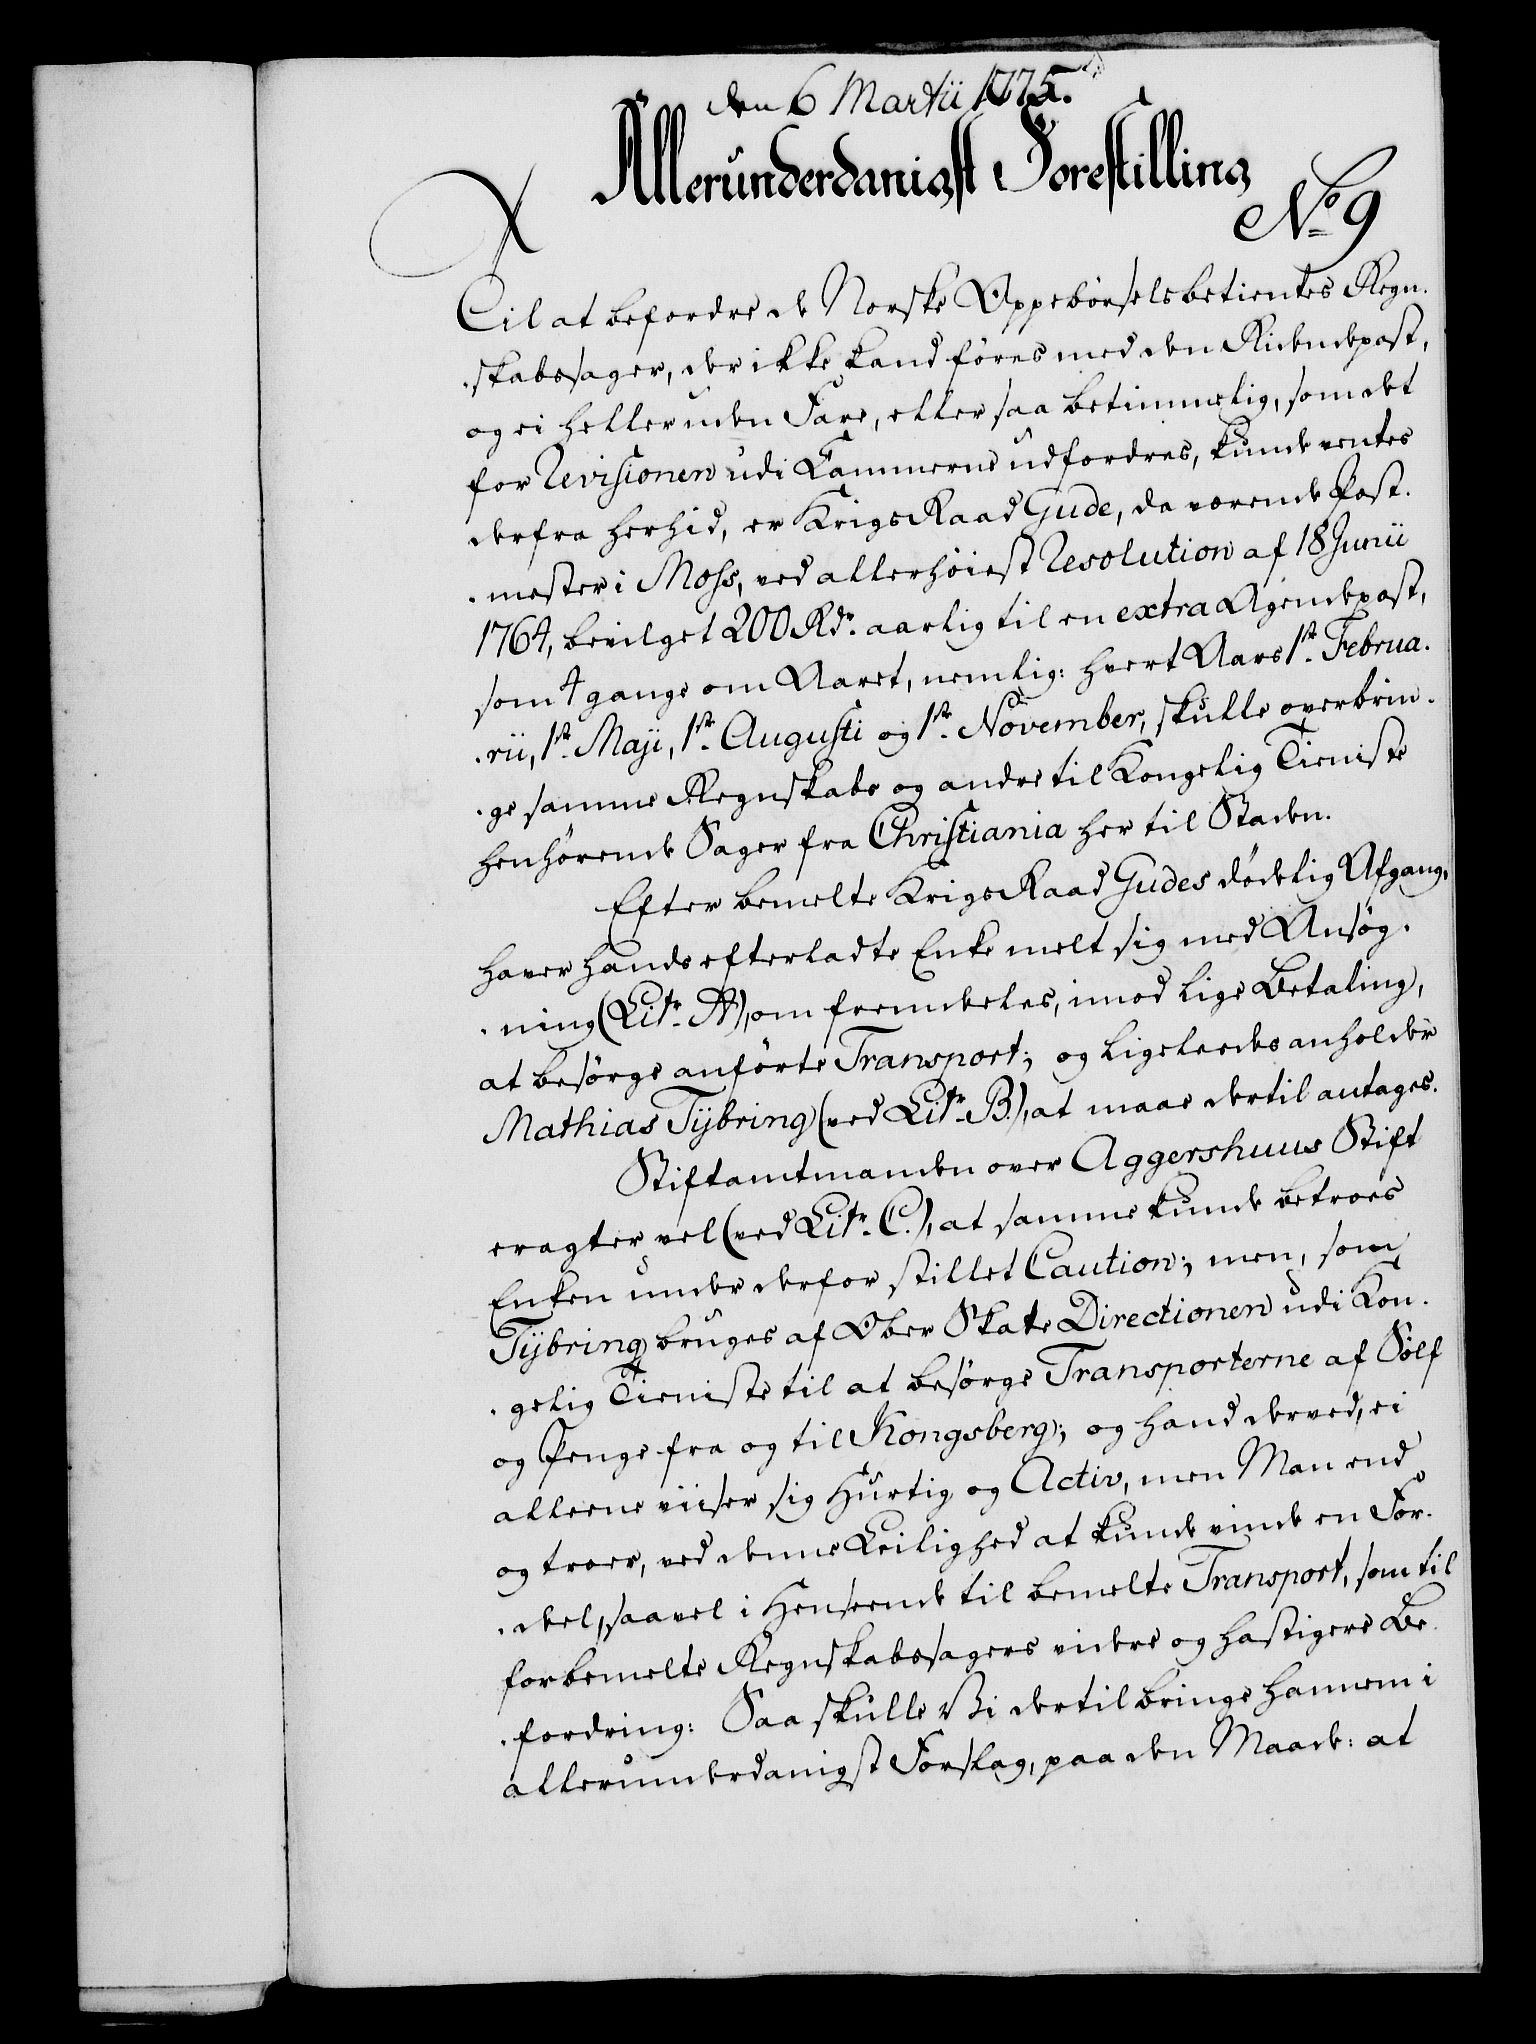 den 6 Martii 1775.
Allerunderdanigst Forestilling
No 9
Til at befordre de Norske Oppebörselsbetientes Regn-
-skabssager, der ikke kand föres med den Ridendepost,
og ei heller uden Fare, eller saa betimmelig, som det
for Revisionen udi Cammerne udfordres, kunde ventes
derfra herhid, er KrigsRaad Gude, da værende Post-
-mester i Moss, ved allerhöiest Resolution af 18 Junii
1764, bevilget 200 Rdr. aarlig til en extra Agendepost,
som 4 gange om Aaret, nemlig: hvert Aars 1ste Februa-
-rii, 1ste Maji, 1ste Augusti og 1ste November, skulle overbrin-
-ge samme Regnskabs og andre til Kongelig Tieniste
henhörende Sager fra Christiania her til Staden.
Efter bemelte KrigsRaad Gudes dödelig Afgang,
haver hands efterladte Enke melt sig med Ansög-
-ning (Litr. A), om fremdeles, imod lige Betaling,
at besörge anförte Transport; og ligeleedes anholder
Mathias Tÿbring (ved Litr. B.), at maae dertil antages.
Stiftamtmanden over Aggershuus Stift
eragter vel (ved Litr. C.), at samme kunde betroes
Enken under derfor stillet Caution; men, som
Tÿbring bruges af Ober Skatte Directionen udi Kon-
-gelig Tieniste til at besörge Transporterne af Sölf
og Penge fra og til Kongsberg; og hand derved, ei
alleene viiser sig Hurtig og Activ, men Man end
og troer, ved denne Leilighed at kunde vinde en For-
-deel, saavel i Henseende til bemelte Transport, som til
forbemelte Regnskabssagers videre og hastigere Be-
-fordring: Saa skulle Vi dertil bringe hannem i
allerunderdanigst Forslag, paa den Maade: at